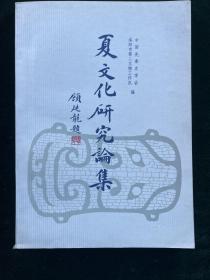 中国先秦史学会
洛阳市第二文物工作队 编
夏文化研究論集
顧廷龍題